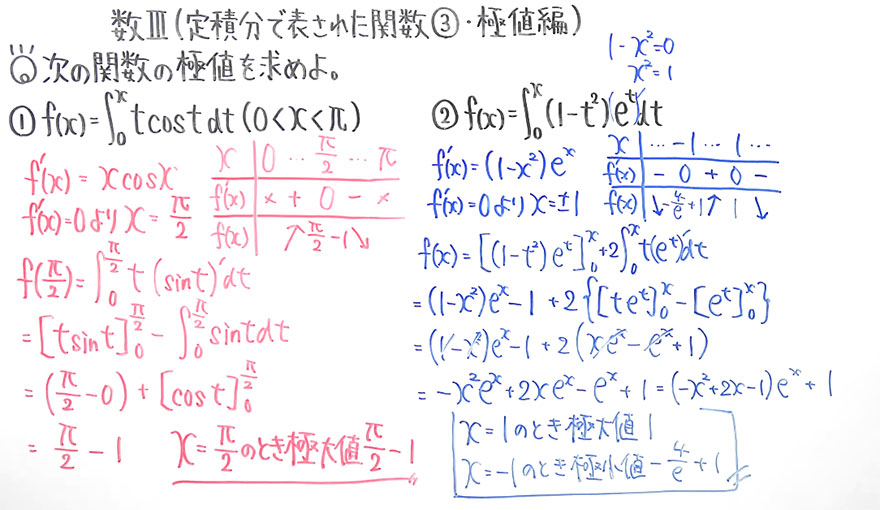 数Ⅲ(定積分で表された関数③・極値編)
次の関数の極値を求めよ。
① f(x)=∫₀ˣ t cost dt (0<x<π)
f'(x) = x cosx
f'(x)=0より x= π/2
x | 0 … π/2 … π
f'(x) | × + 0 − ×
f(x) | ↗ π/2 −1 ↘
f(π/2)=∫₀^(π/2) t (sint)' dt
= [t sint]₀^(π/2) − ∫₀^(π/2) sint dt
= (π/2 −0) + [cost]₀^(π/2)
= π/2 − 1
x= π/2 のとき極大値 π/2 − 1
1−x²=0
x²=1
② f(x)=∫₀ˣ (1−t²)(e^t)'dt
f'(x)=(1−x²)e^x
f'(x)=0より x=±1
x | … −1 … 1 …
f'(x) | − 0 + 0 −
f(x) | ↘ −4/e +1 ↗ 1 ↘
f(x)=[(1−t²)e^t]₀ˣ+2∫₀ˣ t(e^t)'dt
=(1−x²)e^x−1 + 2{[te^t]₀ˣ−[e^t]₀ˣ}
=(1−x²)e^x−1 + 2(xe^x−e^x+1)
= −x²e^x+2xe^x−e^x+1=(−x²+2x−1)e^x+1
x=1のとき極大値 1
x=−1のとき極小値 −4/e +1